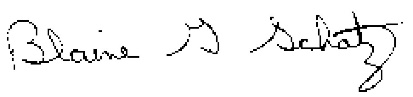 Blaine G Schatz